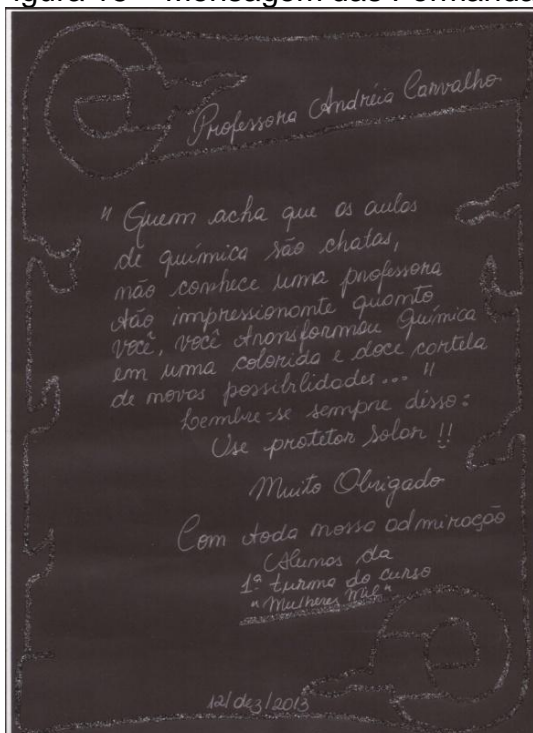 Figura 18 – Mensagem das Formandas
Professora Andréia Carvalho
"Quem acha que as aulas
de química são chatas,
não conhece uma professora
tão impressionante quanto
você, você transformou Química
em uma colorida e doce cartela
de novas possibilidades... "
Lembre-se sempre disso:
Use protetor solar !!
Muito Obrigado
Com toda nossa admiração
Alunas da
1ª turma do curso
"Mulheres Mil"
12/dez/2013